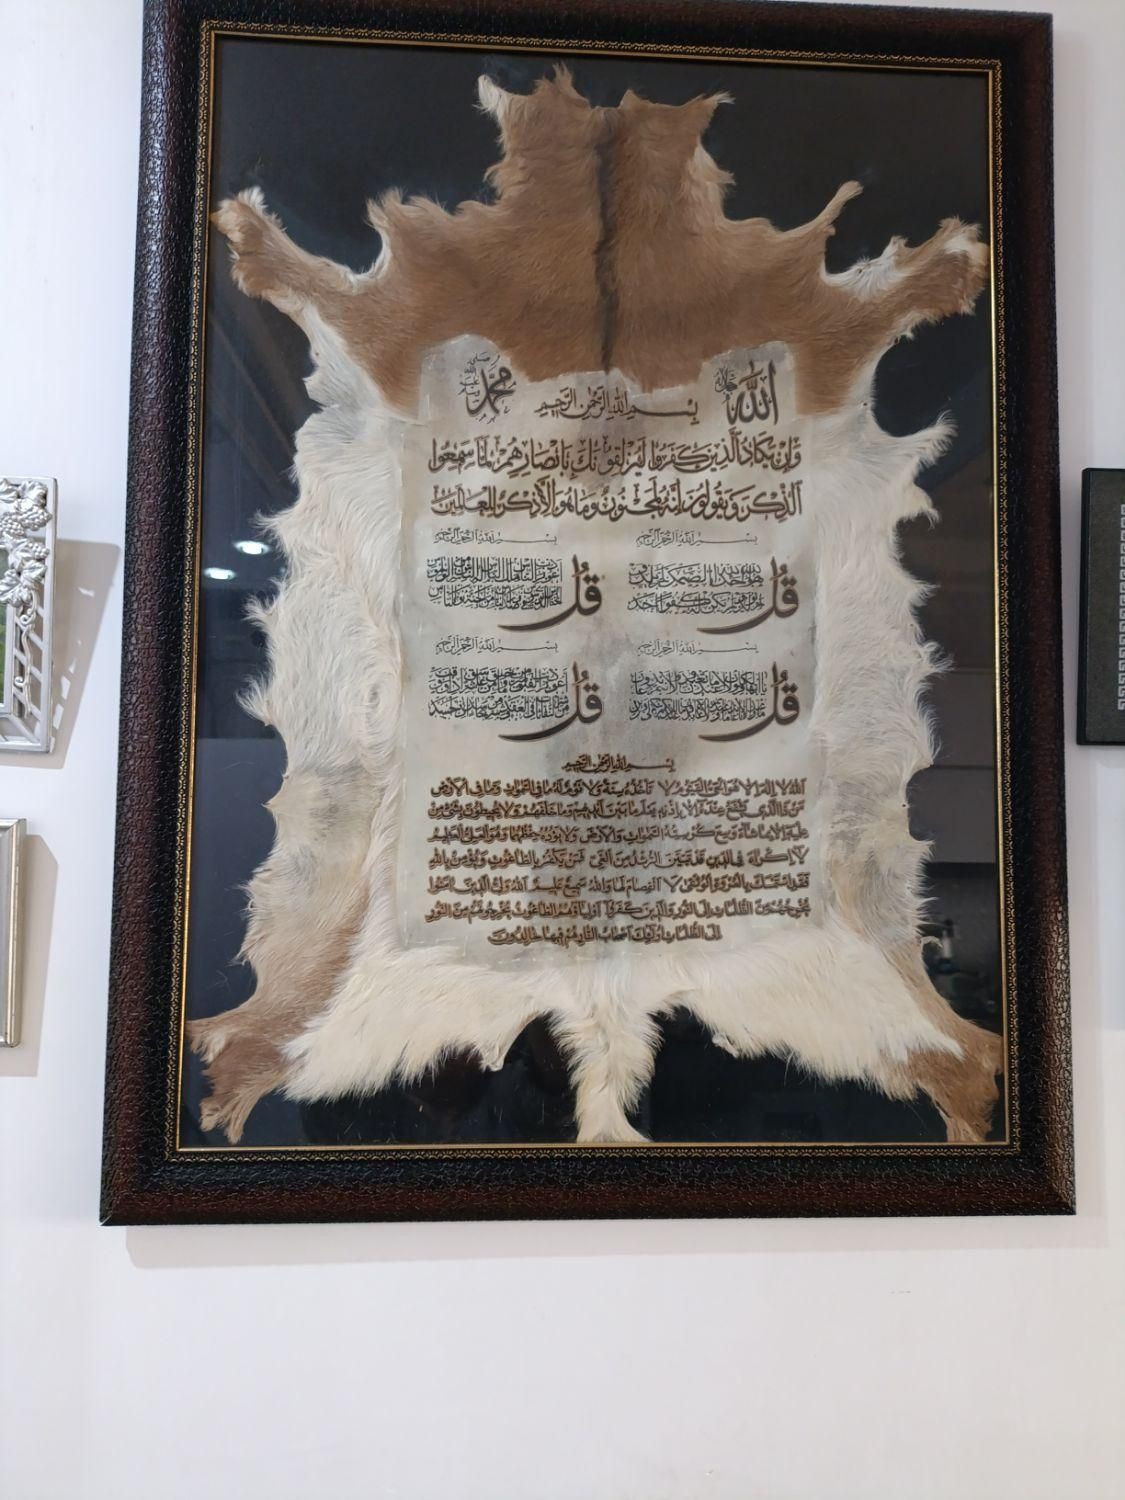 الله جل جلاله
محمد
بسم الله الرحمن الرحيم
وَإِن يَكَادُ الَّذِينَ كَفَرُوا لَيُزْلِقُونَكَ بِأَبْصَارِهِمْ لَمَّا سَمِعُوا
الذِّكْرَ وَيَقُولُونَ إِنَّهُ لَمَجْنُونٌ وَمَا هُوَ إِلَّا ذِكْرٌ لِلْعَالَمِينَ
بسم الله الرحمن الرحيم
قُلْ هو الله أحد الله الصمد لم يلد
ولم يولد ولم يكن له كفوا أحد
بسم الله الرحمن الرحيم
قُلْ أعوذ برب الناس ملك الناس إله الناس من شر الوسواس
الخناس الذي يوسوس في صدور الناس من الجنة والناس
بسم الله الرحمن الرحيم
قُلْ يا أيها الكافرون لا أعبد ما تعبدون ولا أنتم عابدون
ما أعبد ولا أنا عابد ما عبدتم ولا أنتم عابدون ما أعبد لكم دينكم ولي دين
بسم الله الرحمن الرحيم
قُلْ أعوذ برب الفلق من شر ما خلق ومن شر غاسق إذا وقب
ومن شر النفاثات في العقد ومن شر حاسد إذا حسد
بسم الله الرحمن الرحيم
الله لا إله إلا هو الحي القيوم لا تأخذه سنة ولا نوم له ما في السموات وما في الأرض
من ذا الذي يشفع عنده إلا بإذنه يعلم ما بين أيديهم وما خلفهم ولا يحيطون بشيء من
علمه إلا بما شاء وسع كرسيه السموات والأرض ولا يؤده حفظهما وهو العلي العظيم
لا إكراه في الدين قد تبين الرشد من الغي فمن يكفر بالطاغوت ويؤمن بالله
فقد استمسك بالعروة الوثقى لا انفصام لها والله سميع عليم الله ولي الذين آمنوا
يخرجهم من الظلمات إلى النور والذين كفروا أولياؤهم الطاغوت يخرجونهم من النور
إلى الظلمات أولئك أصحاب النار هم فيها خالدون